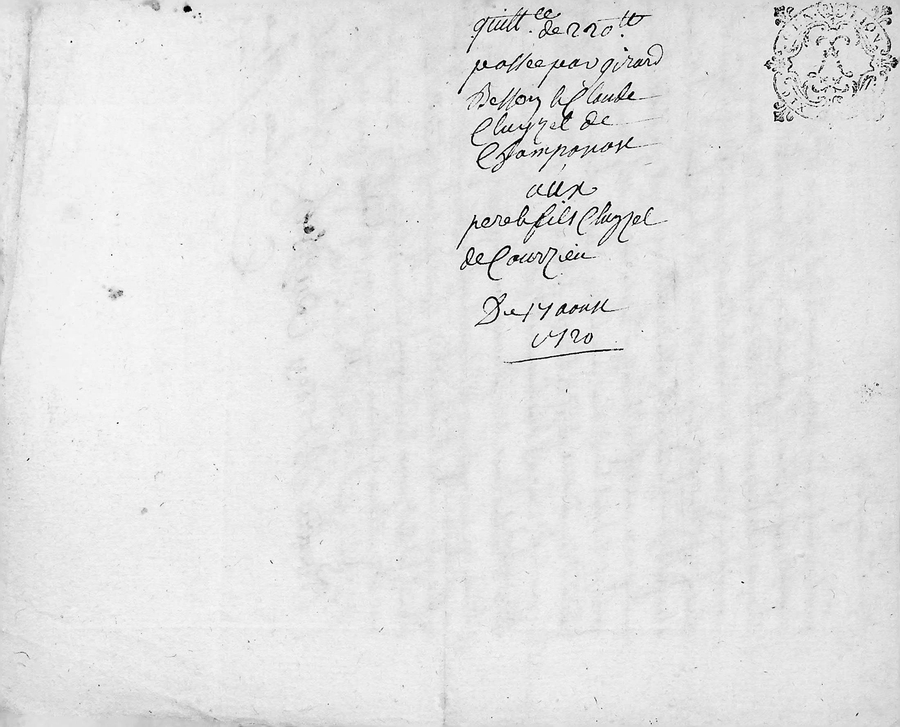 quitt.ce de 220 tt
passée par girard
Besson & Claude
Cluzzel de
Champonost
aux
pere & fils Cluzzel
de Courzieu
Du 17 aoust
1720